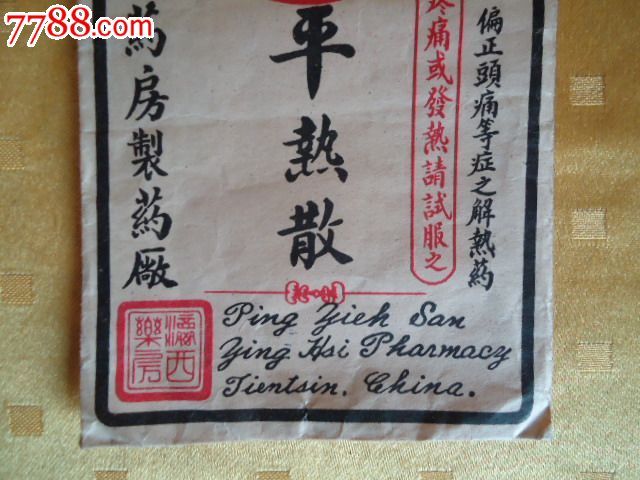 7788.com
偏正頭痛等症之解熱葯
疼痛或發熱請試服之
平熱散
葯房製葯廠
Ping Yieh San
Ying Hsi Pharmacy
Tientsin. China.